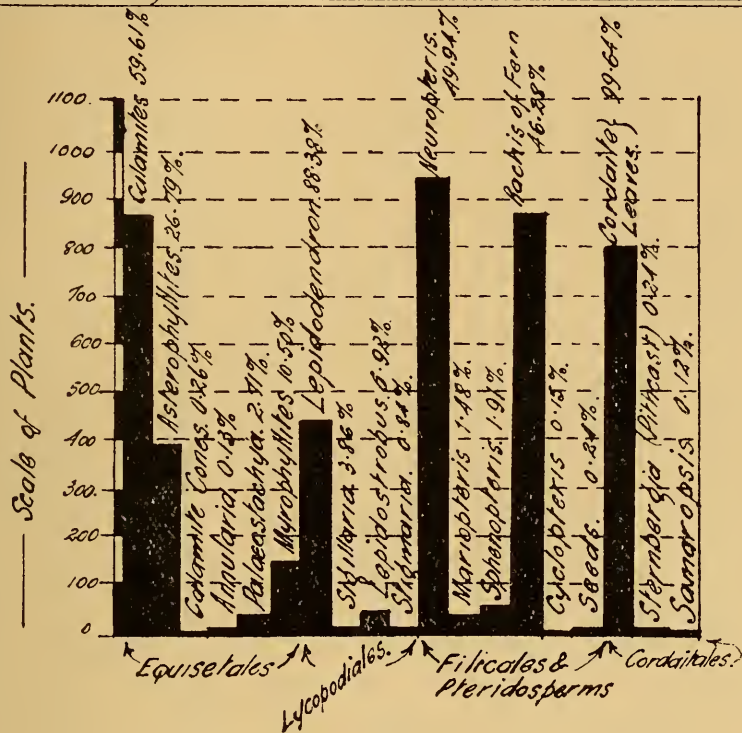 Scale of Plants.
1100.
1000
900
800
700
600
500
400
300
200
100
0
Calamites 59.61%
Asterophyllites. 26.79%.
Calamite Cones. 0.26%
Annularia. 0.13%
Palaeostachya. 2.71%
Myrophyllites 10.50%
Lepidodendron. 88.38%
Sigillaria. 3.86%
Lepidostrobus. 6.92%
Stigmaria. 0.84%
Neuropteris.
49.94%
Mariopteris 1.48%
Sphenopteris. 1.92%
Rachis of Fern
46.28%
Cyclopteris 0.13%
Seeds. 0.24%
Cordaite} 99.64%
Leaves.}
Sternbergia (Pithcast) 0.24%
Samaropsis. 0.12%
Equisetales
Lycopodiales.
Filicales &
Pteridosperms
Cordaitales.